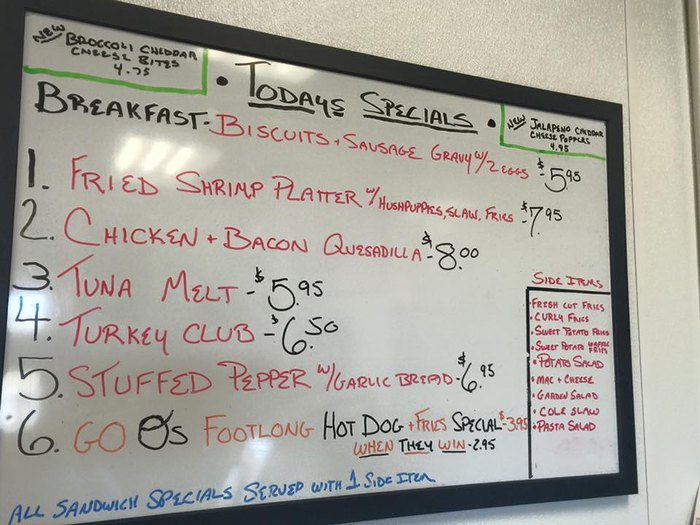 NEW BROCCOLI CHEDDAR
CHEESE BITES
4.75
• TODAYS SPECIALS •
NEW JALAPENO CHEDDAR
CHEESE POPPERS
4.95
BREAKFAST- BISCUITS + SAUSAGE GRAVY W/2 EGGS $-5.95
1. FRIED SHRIMP PLATTER W/HUSHPUPPIES, SLAW, FRIES $-7.95
2. CHICKEN + BACON QUESADILLA-$8.00
3. TUNA MELT-$5.95
4. TURKEY CLUB-$6.50
5. STUFFED PEPPER W/GARLIC BREAD-$6.95
6. GO O's FOOTLONG HOT DOG + FRIES SPECIAL-$3.95
WHEN THEY WIN-2.95
ALL SANDWICH SPECIALS SERVED WITH 1 SIDE ITEM
SIDE ITEMS
• FRESH CUT FRIES
• CURLY FRIES
• SWEET POTATO FRIES
• SWEET POTATO WAFFLE FRIES
• POTATO SALAD
• MAC + CHEESE
• GARDEN SALAD
• COLE SLAW
• PASTA SALAD